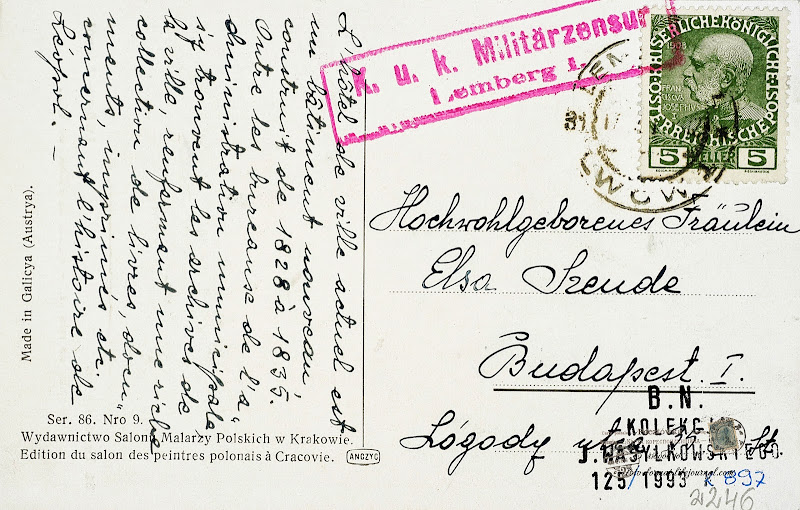 L'hôtel de ville actuel est
un bâtiment nouveau
construit de 1828 à 1835.
Outre les bureaux de l'a"
dministration municipale
s'y trouvent les archives de
la ville, renfermant une riche
collection de livres, docu"
ments, imprimés etc.
concernant l'histoire de
Léopol. –
Made in Galicya (Austrya).
Ser. 86. Nro 9.
Wydawnictwo Salonu Malarzy Polskich w Krakowie.
Edition du salon des peintres polonais à Cracovie.
ANCZYC
K. u. k. Militärzensur
Lemberg 1.
LWÓW
1908
FRANCISCUS JOSEPHUS I
5 HELLER 5
Hochwohlgeborenes Fräulein
Elsa Szende
Budapest I.
Lógody utca
B.N.
KOLEKCJA
J.WASYLKOWSKIEGO
125/1993 K 897
2246